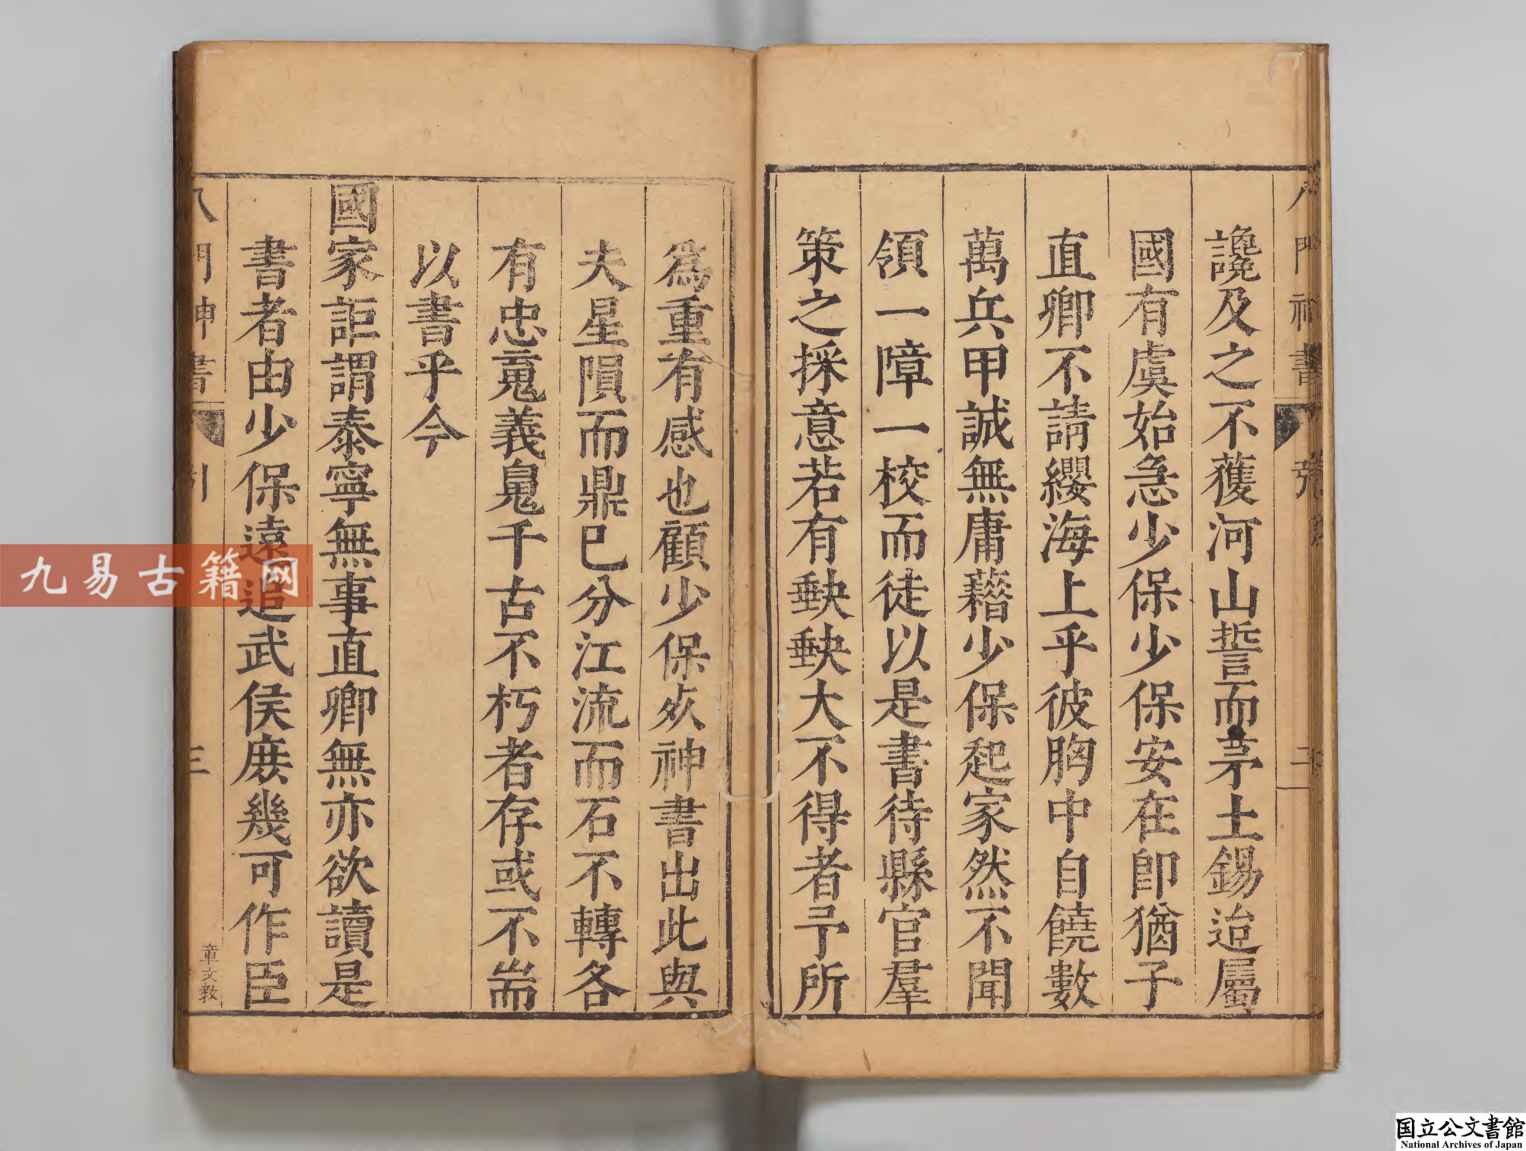 讒及之不獲河山誓而茅土錫迨屬
國有虞始急少保少保安在卽猶子
直卿不請纓海上乎彼胸中自饒數
萬兵甲誠無庸藉少保起家然不聞
領一障一校而徒以是書待縣官羣
策之採意若有缺缺大不得者予所
為重有感也顧少保歿神書出此與
夫星隕而鼎已分江流而石不轉各
有忠䰟義鬼千古不朽者存或不耑
以書乎今
國家詎謂泰寧無事直卿無亦欲讀是
書者由少保遠追武侯庻幾可作臣
八門神書
引
三
章文教
九易古籍网
国立公文書館
National Archives of Japan